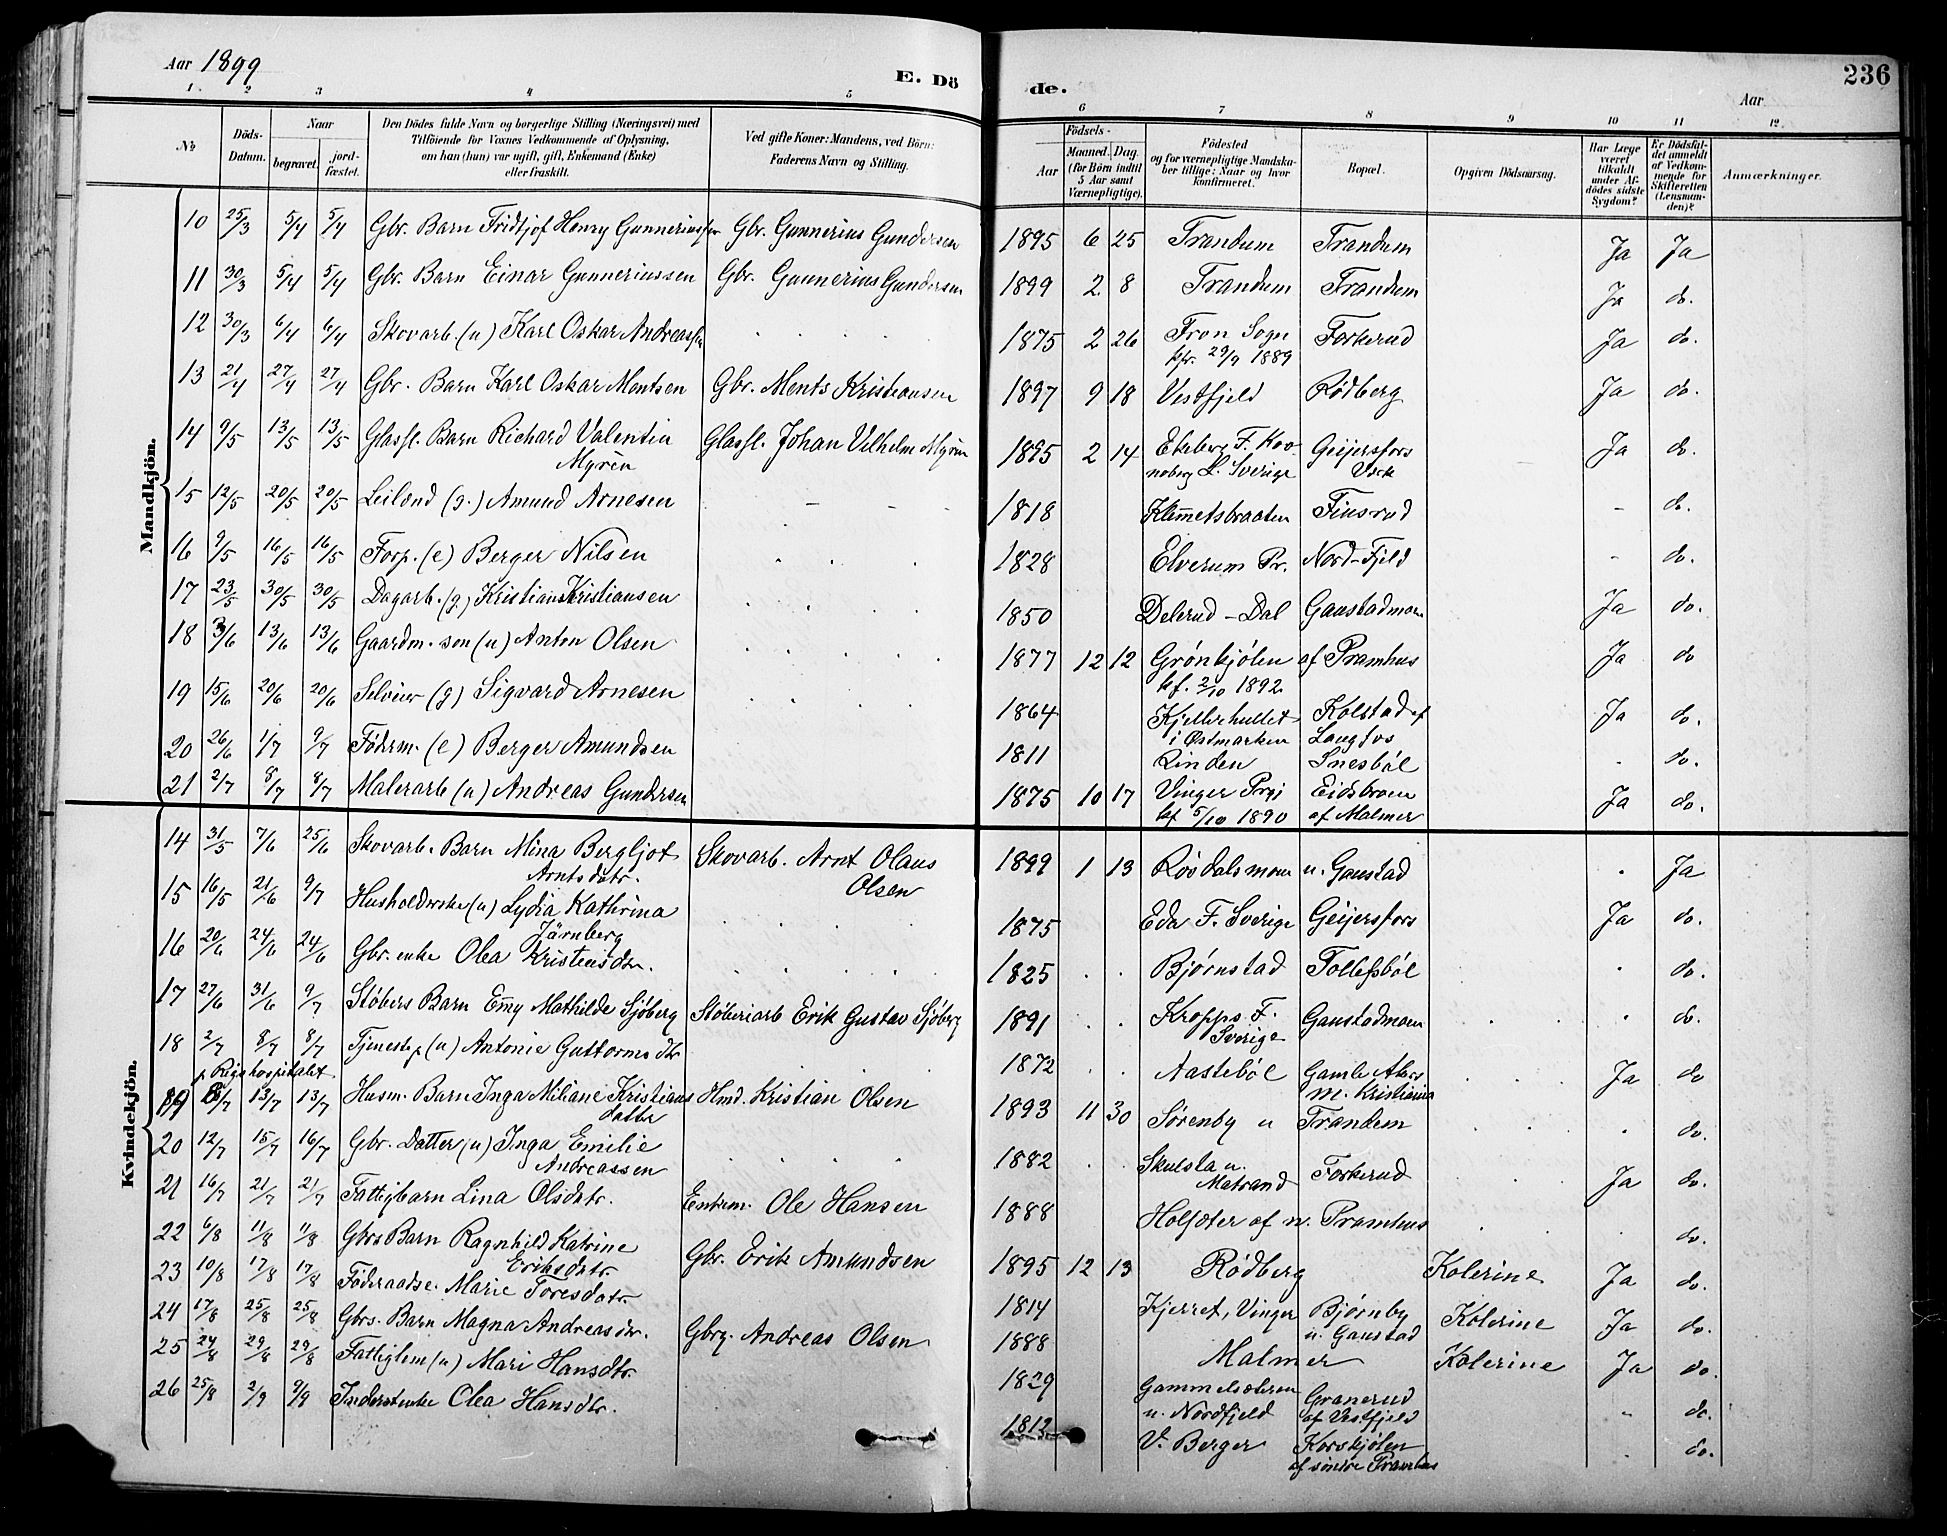 Aar 1899
E. Dö
de.
Aar
236
1 2 3 4 5 6 7 8 9 10 11 12
№
Döds-Datum.
Naar
begravet.
jord-fæstet.
Den Dödes fulde Navn og borgerlige Stilling (Næringsvei) med
Tilföiende for Voxnes Vedkommende af Oplysning,
om han (hun) var ugift, gift, Enkemand (Enke)
eller fraskilt.
Ved gifte Koner: Mandens, ved Börn:
Faderens Navn og Stilling.
Födsels-
Aar
Maaned. Dag.
(for Börn indtil
5 Aar samt
Værnepligtige).
Födested
og for værnepligtige Mandska-
ber tillige: Naar og hvor
konfirmeret.
Bopæl.
Opgiven Dödsaarsag.
Har Læge
været
tilkaldt
under Af-
dödes sidste
Sygdom?
Er Dödsfal-
det anmeldt
af Vedkom-
mende for
Skifteretten
(Lensman-
den)?
Anmærkninger.
Mandkjön.
10 25/3 5/4 5/4 Gbr. Barn Fridtjof Henry Gunneriussen Gbr. Gunnerius Gundersen 1895 6 25 Trandum Trandum Ja Ja
11 30/3 5/4 5/4 Gbr. Barn Einar Gunneriussen Gbr. Gunnerius Gundersen 1899 2 8 Trandum Trandum Ja do.
12 30/3 6/4 6/4 Skovarb. (u) Karl Oskar Andreassen 1875 2 26 Fron Sogn Forkerud Ja do.
kfr. 29/9 1889
13 21/4 27/4 27/4 Gbr. Barn Karl Oskar Mentsen Gbr. Ments Kristiansen 1897 9 18 Vestfjeld Rödberg Ja do.
14 9/5 13/5 13/5 Glassl. Barn Richard Valentin Glassl. Johan Vilhelm Myrén 1895 2 14 Ekeberg F. Kro- Geijersfors Ja do.
Myrén noberg L. Sverige Verk
15 12/5 20/5 20/5 Leilænd (g.) Amund Arnesen 1818 Klemetsbraaten Finsrud - do.
16 9/5 16/5 16/5 Forp. (e) Berger Nilsen 1828 Elverum Pr. Nord-Fjeld - do.
17 23/5 30/5 30/5 Dagarb. (g.) Kristian Kristiansen 1850 Delerud - Dal Gaustadmoen Ja do.
18 3/6 13/6 13/6 Gaardm. søn (u) Anton Olsen 1877 12 12 Grønkjølen af Pramhus Ja do
kf. 2/10 1892
19 15/6 20/6 20/6 Selveier (g) Sigvard Arnesen 1864 Kjellerhullet Kolstad af Ja do.
i Østmarken Langfos
20 26/6 1/7 9/7 Føderm. (e) Berger Amundsen 1811 Linden Snesböl . do.
21 2/7 8/7 8/7 Malerarb (u) Andreas Gundersen 1875 10 17 Vinger Prgj Eidsbroen Ja do.
kf 5/10 1890 af Malmer
Kvindekjön.
14 31/5 7/6 25/6 Skovarb. Barn Mina Bergljot Skovarb. Arnt Olaus 1899 1 13 Røsdalsmoen u. Gaustad . Ja
Arntsdatr. Olsen
15 16/5 21/6 9/7 Husholderske (u) Lydia Kathrina 1875 Eda F. Sverige Geijersfors Ja do.
Järnberg
16 20/6 24/6 24/6 Gbr. enke Olea Kristensdtr. 1825 . . Bjørnstad Tollefsböl . do.
17 27/6 31/6 9/7 Støbers Barn Emy Mathilde Sjöberg Støberiarb Erik Gustav Sjöberg 1891 . . Kropps F. Gaustadmoen . do.
Sverige
18 2/7 8/7 8/7 Tjenestep (u) Antonie Guttormsdtr 1872 . . Aasteböl Gamle Akers Ja do
p. Rigshospitalet m. Kristiania
19 8/7 13/7 13/7 Husm. Barn Inga Miliane Kristians Hmd. Kristian Olsen 1893 11 30 Sørenby u Trandem . do.
datter
20 12/7 15/7 16/7 Gbr. Datter (u) Inga Emilie 1882 . . Skulsta u. Forkerud Ja do.
Andreassen Matrand
21 16/7 21/7 21/7 Fattigbarn Lina Olsdatr. Enkem. Ole Hansen 1888 Holsæter af n. Pramhus . do.
22 6/8 11/8 11/8 Gbrs Barn Ragnhild Katrine Gbr. Erik Amundsen 1895 12 13 Rödberg Kolerine Ja do.
Eriksdatr.
23 10/8 17/8 17/8 Föderaadse. Marie Toresdatr. 1814 Kjerret, Vinger Bjørnby Kolerine Ja do.
u. Gaustad
24 17/8 25/8 25/8 Gbrs. Barn Magna Andreasdtr. Gbrg. Andreas Olsen 1888 Malmer Kolerine Ja do.
25 24/8 29/8 29/8 Fattiglem (u) Mari Hansdtr. 1829 Gammelsæteren Granerud - do.
u. Nordfjeld af Vestfjeld
26 25/8 2/9 9/9 Inderstenke Olea Hansdtr. 1812 V. Berger Korskjølen . do.
af søndre Pramhus